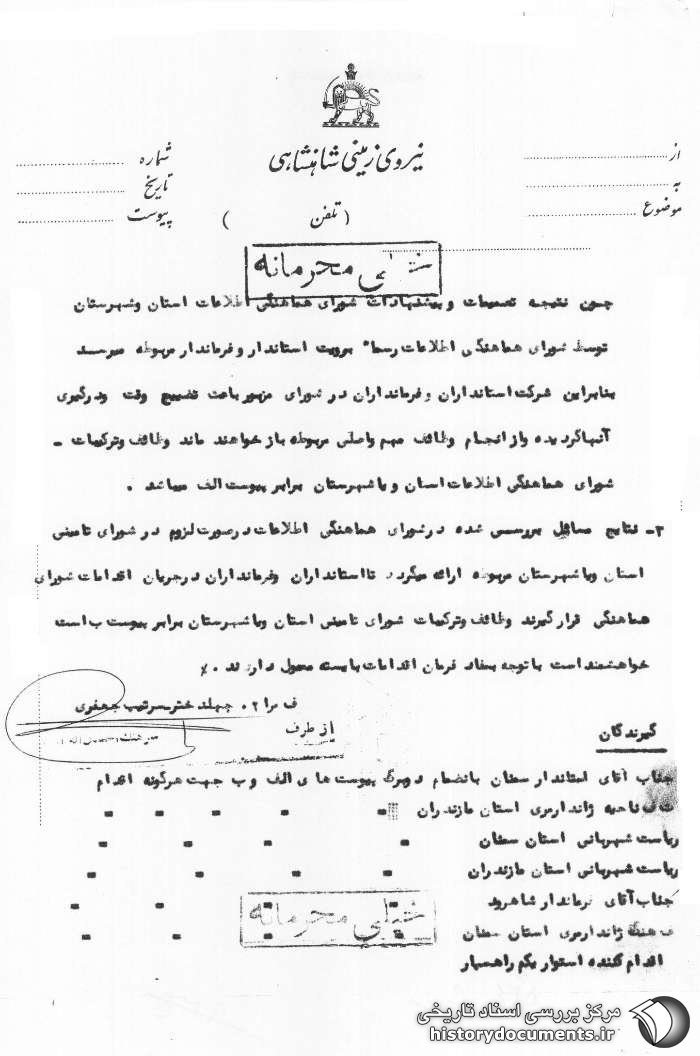 نیروی زمینی شاهنشاهی
از
به
موضوع
شماره
تاریخ
پیوست
( تلفن )
خیلی محرمانه
چون نتیجه تصمیمات و پیشنهادات شورای هماهنگی اطلاعات استان وشهرستان
توسط شورای هماهنگی اطلاعات رسما" برویت استاندار و فرماندار مربوطه میرسد
بنابراین شرکت استانداران و فرمانداران در شورای مزبور باعث تضییع وقت ودرگیری
آنهاگردیده واز انجام وظائف مهم واصلی مربوطه باز خواهند ماند وظائف وترکیبات -
شورای هماهنگی اطلاعات استان و یا شهرستان برابر پیوست الف میباشد .
۳- نتایج مسائل بررسی شده در شورای هماهنگی اطلاعات درصورت لزوم در شورای تامینی
استان ویا شهرستان مربوطه ارائه میگردد تا استانداران وفرمانداران درجریان اقدامات شورای
هماهنگی قرار گیرند وظائف وترکیبات شورای تامینی استان ویا شهرستان برابر پیوست ب است
خواهشمند است با توجه بمفاد فرمان اقدامات بایسته معمول دارند . ٪
ف مرا ۲۰ چهلدختر سرتیپ جعفری
از طرف
سرهنگ
گیرندگان
جناب آقای استاندار سمنان بانضمام دوبرگ پیوست های الف و ب جهت هرگونه اقدام
ف ناحیه ژاندارمری استان مازندران " " " " "
ریاست شهربانی استان سمنان " " " "
ریاست شهربانی استان مازندران " " " "
جناب آقای فرماندار شاهرود " " " "
ف هنگ ژاندارمری استان سمنان " " " "
خیلی محرمانه
اقدام کننده استوار یکم راهسپار
مرکز بررسی اسناد تاریخی
historydocuments.ir